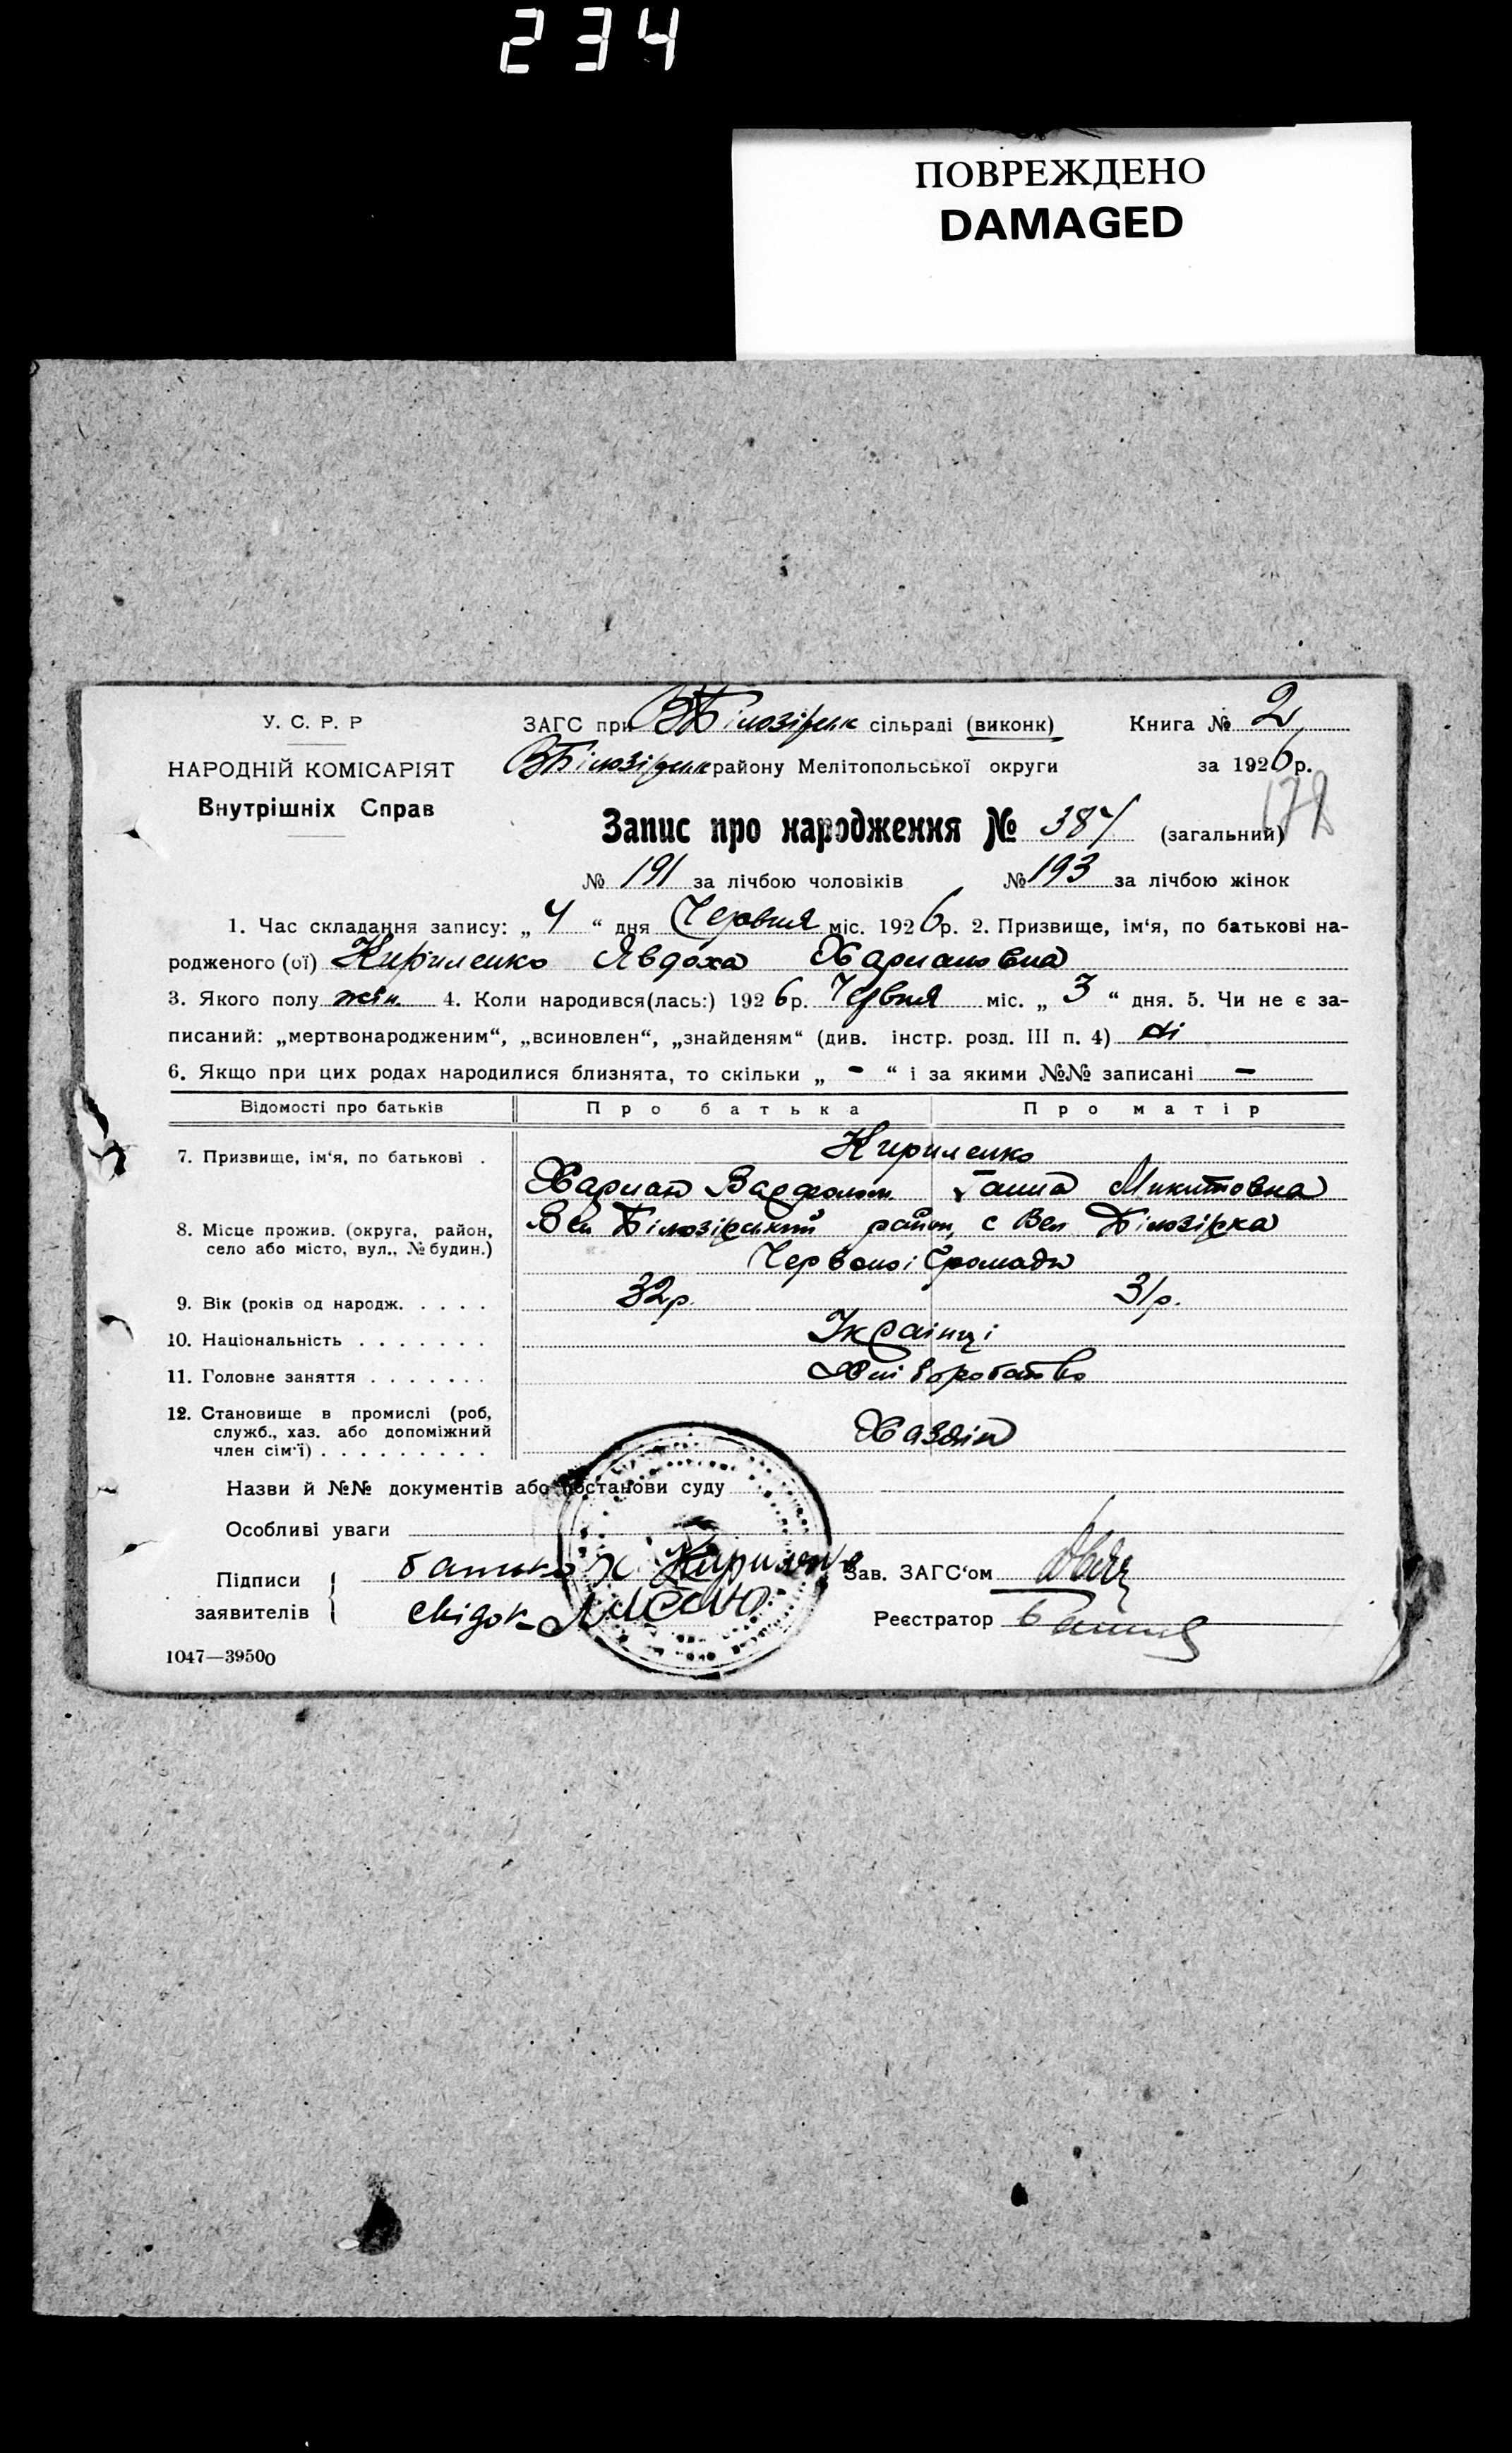 234
ПОВРЕЖДЕНО
DAMAGED
У. С. Р. Р
НАРОДНІЙ КОМІСАРІЯТ
Внутрішніх Справ
ЗАГС при ВБілозірськ сільраді (виконк)
ВБілозірськ району Мелітопольської округи
Книга № 2
за 1926 р.
178
Запис про народження № 384 (загальний)
№ 191 за лічбою чоловіків № 193 за лічбою жінок
1. Час складання запису: „ 4 “ дня Червня міс. 1926 р. 2. Призвище, ім‘я, по батькові на-
родженого (ої) Кириленко Явдоха Харитоновна
3. Якого полу жін. 4. Коли народився(лась:) 1926 р. Червня міс. „ 3 “ дня. 5. Чи не є за-
писаний: „мертвонародженим“, „всиновлен“, „знайденям“ (див. інстр. розд. III п. 4) ні
6. Якщо при цих родах народилися близнята, то скільки „ - “ і за якими №№ записані -
Відомості про батьків Про батька Про матір
7. Призвище, ім‘я, по батькові . Кириленко
Харитон Варфолом Ганна Микитовна
8. Місце прожив. (округа, район, Вел Білозірський район, с Вел Білозірка
село або місто, вул., № будин.) Червоної Громади
9. Вік (років од народж. . . . . 32р. 31р.
10. Національність . . . . . . . Українці
11. Головне заняття . . . . . . . Хліборобство
12. Становище в промислі (роб,
служб., хаз. або допоміжний Хазяїн
член сім‘ї) . . . . . . . . .
Назви й №№ документів або постанови суду
Особливі уваги
Підписи батько Х Кириленко Зав. ЗАГС‘ом
заявителів свідок Реєстратор
1047—39500